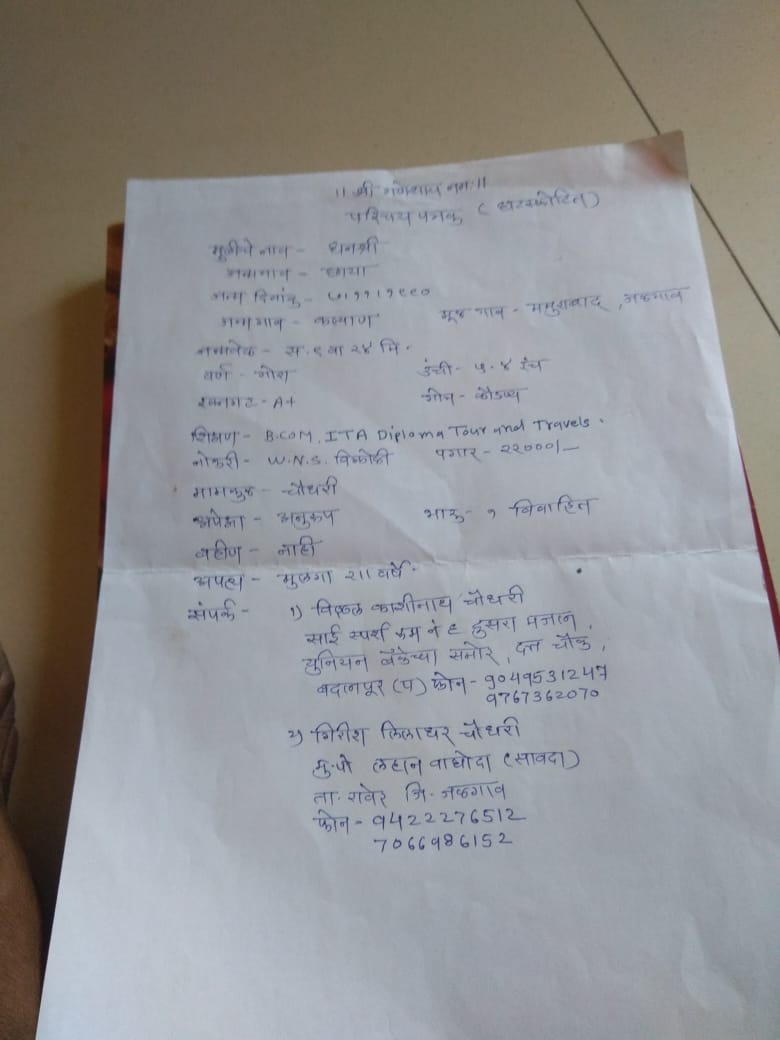 ।। श्री गणेशाय नमः ।।
परिचय पत्रक (घटस्फोटित)
मुलीचे नाव - धनश्री
जन्मनाव - छाया
जन्म दिनांक - ७।११।१९९०
जन्मगाव - कल्याण मूळ गाव - ममुराबाद, जळगाव
जन्मवेळ - स. ९ वा २४ मि.
वर्ण - गोरा उंची - ५.४ इंच
रक्तगट - A+ गोत्र -
शिक्षण - B.COM, ITA Diploma Tour and Travels.
नोकरी - W.N.S. विक्रोळी पगार - २२०००/-
मामकुळ - चौधरी
अपेक्षा - अनुरूप भाऊ - १ विवाहित
बहीण - नाही
अपत्य - मुलगा २॥ वर्षे.
संपर्क - १) विठ्ठल काशीनाथ चौधरी
साई स्पर्श रूम नं ८ दुसरा मजला,
युनियन बँकेच्या समोर, दत्त चौक,
बदलापूर (प) फोन - 9049531247
9767362070
२) गिरीश लिलाधर चौधरी
मु.पो लहान वाघोदा (सावदा)
ता. रावेर जि. जळगाव
फोन - 9422276512
7066986152